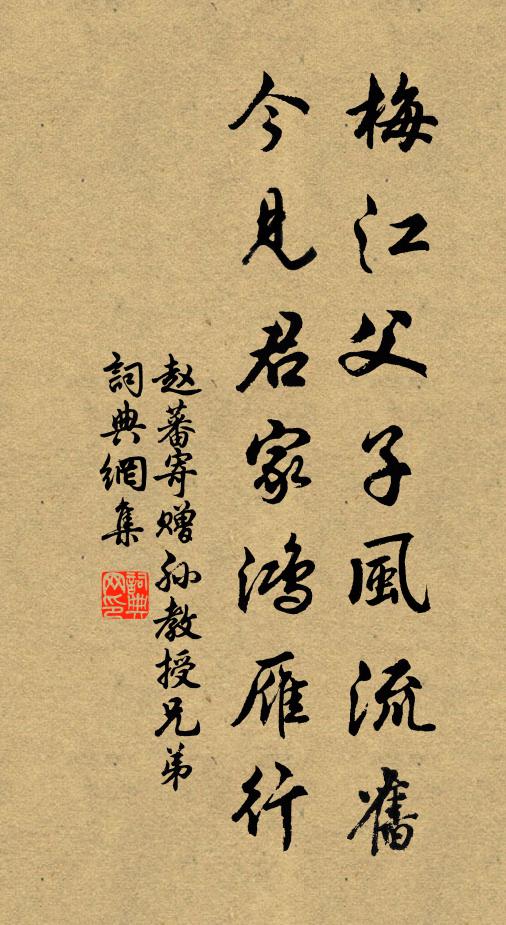 梅江父子風流舊
今見君家鴻雁行
赵蕃寄赠孙教授兄弟
詞典網集
詞典
网印